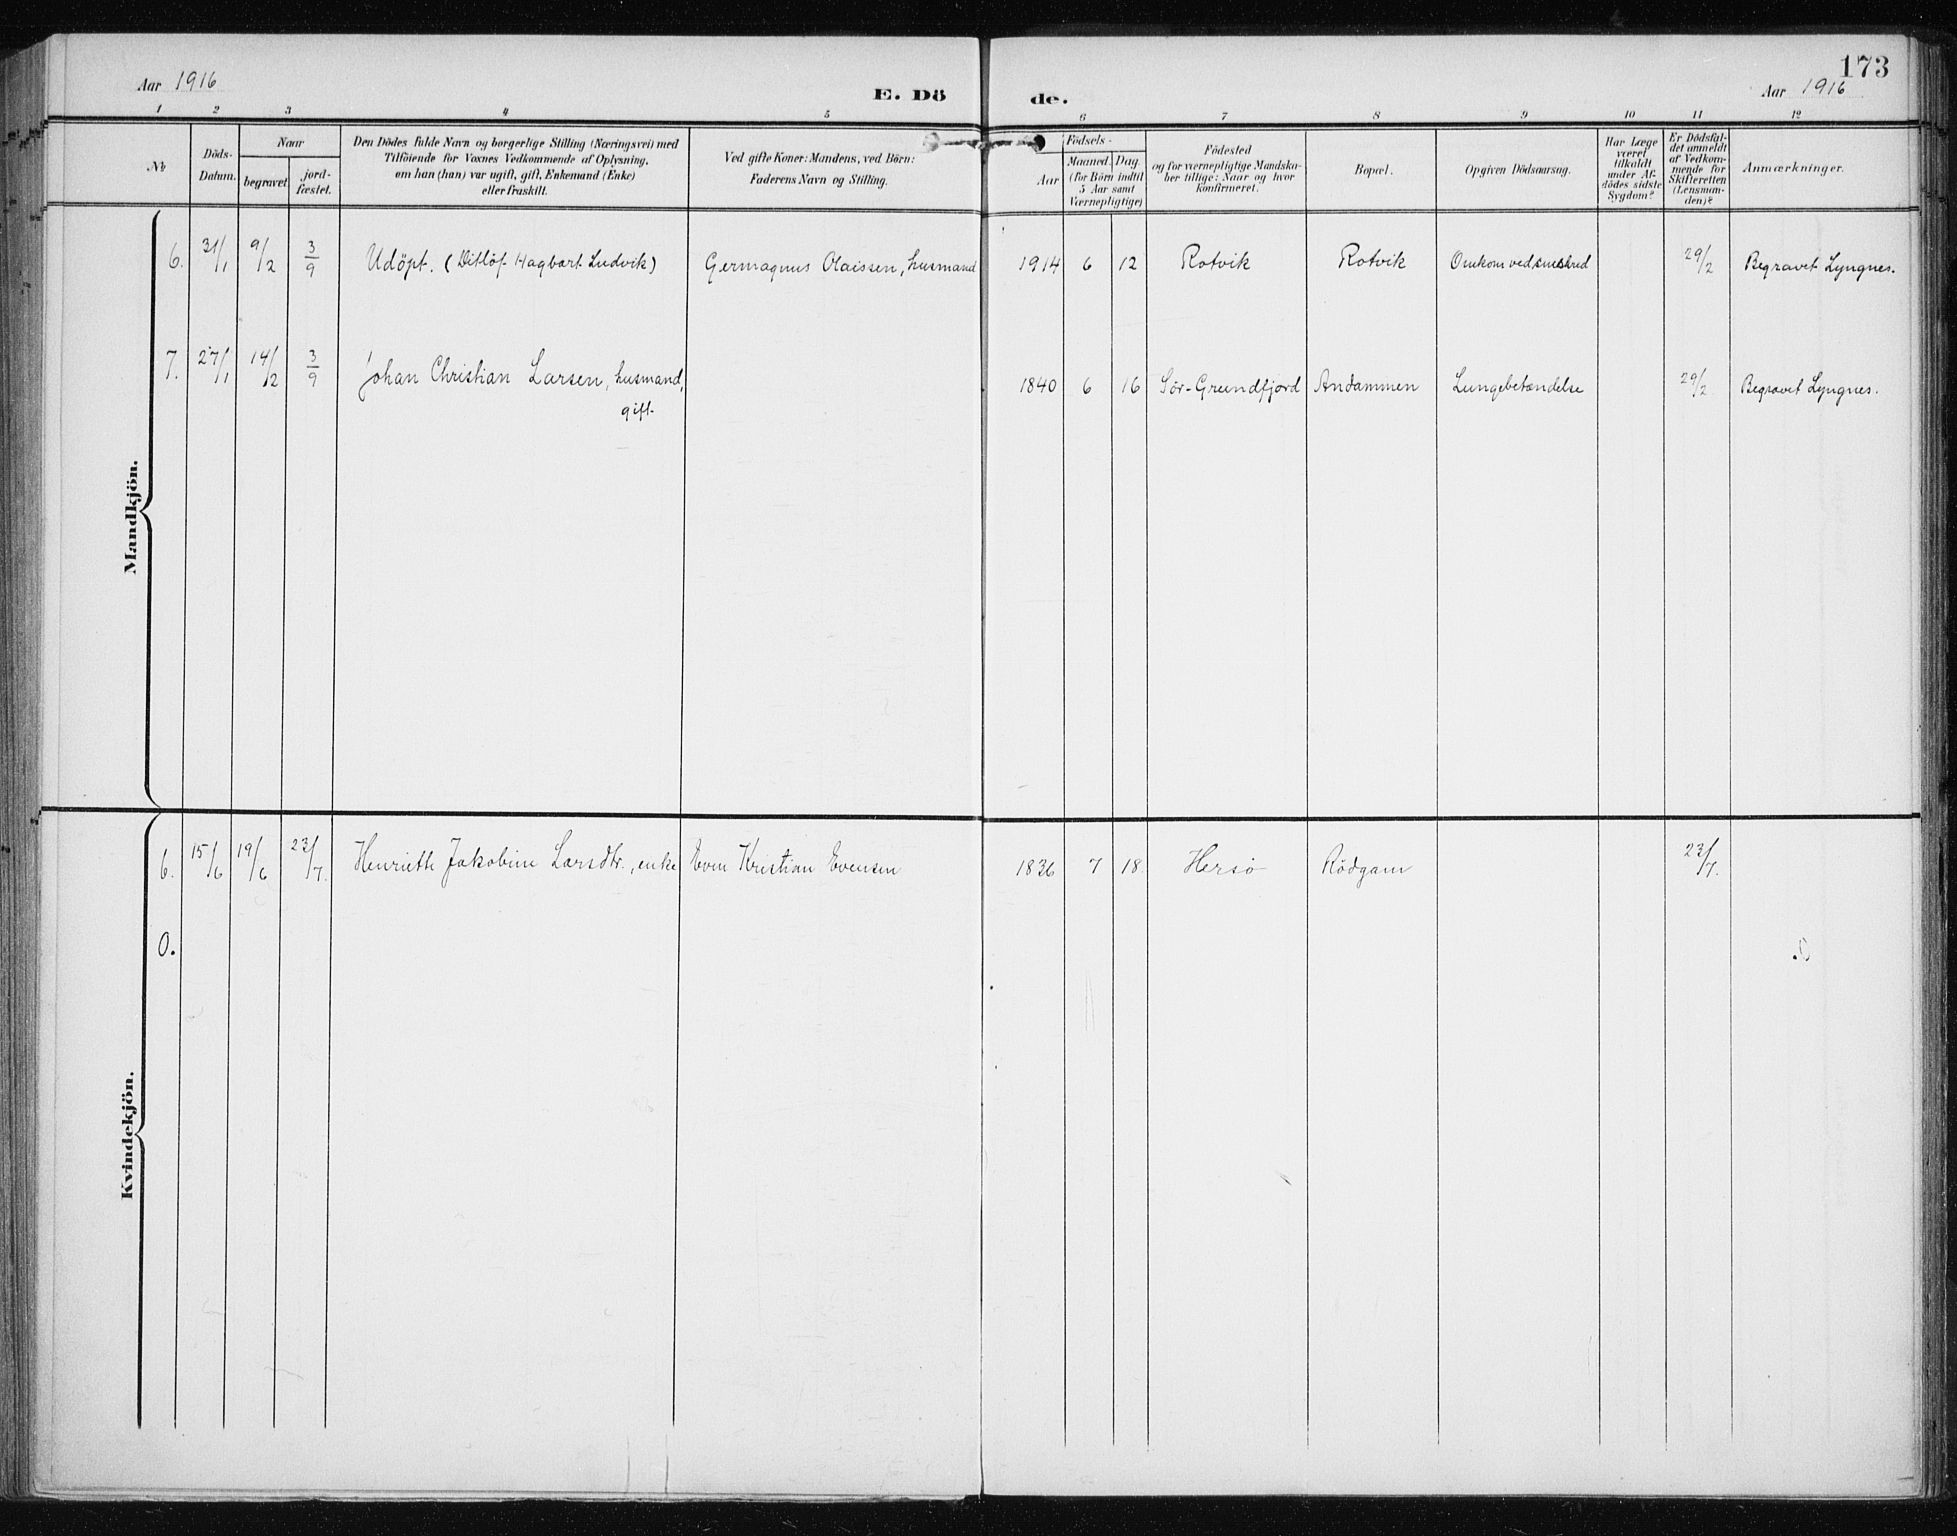 173
Aar 1916
E. Dö
de.
Aar 1916
1 2 3 4 5 6 7 8 9 10 11 12
No
Döds-
Datum.
Naar
begravet.
jord-
fæstet.
Den Dödes fulde Navn og borgerlige Stilling (Næringsvei) med
Tilföiende for Voxnes Vedkommende af Oplysning,
om han (hun) var ugift, gift, Enkemand (Enke)
eller fraskilt.
Ved gifte Koner: Mandens, ved Börn:
Faderens Navn og Stilling.
Födsels-
Aar
Maaned. Dag.
(for Börn indtil
5 Aar samt
Værnepligtige)
Födested
og for værnepligtige Mandska-
ber tillige: Naar og hvor
konfirmeret.
Bopæl.
Opgiven Dödsaarsag.
Har Læge
været
tilkaldt
under Af-
dödes sidste
Sygdom?
Er Dödsfal-
det anmeldt
af Vedkom-
mende for
Skifteretten
(Lensman-
den)?
Anmærkninger.
Mandkjön.
6. 31/1 9/2 3/9 Udöpt. (Ditlöf Hagbart Ludvik) Germagnus Olaissen, husmand 1914 6 12 Rotvik Rotvik Omkom ved sneskred 29/2 Begravet Lyngnes.
7. 27/1 14/2 3/9 Johan Christian Larsen, husmand, 1840 6 16 Sör-Grundfjord Andammen Lungebetændelse 29/2 Begravet Lyngnes.
gift.
Kvindekjön.
6. 15/6 19/6 23/7. Henriette Jakobine Larsdtr., enke Even Kristian Evensen 1836 7 18. Hersö Rödgam 23/7.
0.